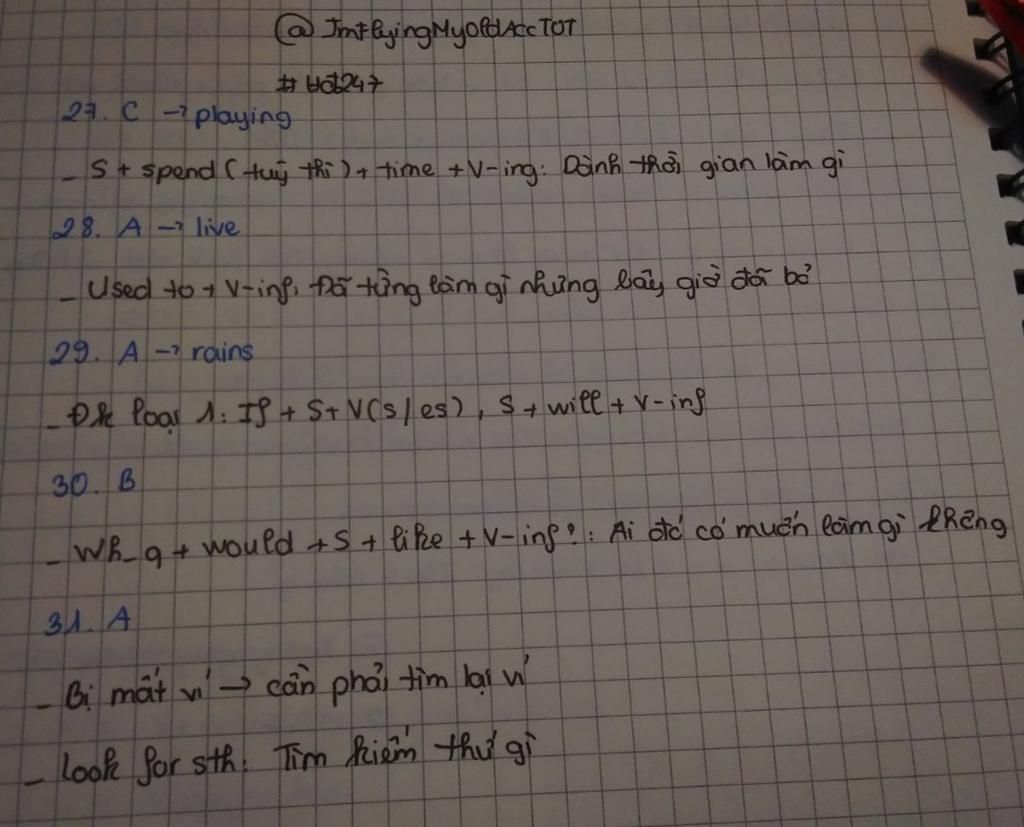 @ ImFlyingMyOldAccTOT
# Hot247
27. C → playing
- S + spend (tuỳ thì) + time + V-ing: Dành thời gian làm gì
28. A → live
- Used to + V-inf: Đã từng làm gì nhưng bây giờ đã bỏ
29. A → rains
- Đk loại 1: If + S + V(s/es), S + will + V-inf
30. B
- Wh_q + would + S + like + V-inf?: Ai đó có muốn làm gì không
31. A
- Bị mất ví → cần phải tìm lại ví
- Look for sth: Tìm kiếm thứ gì